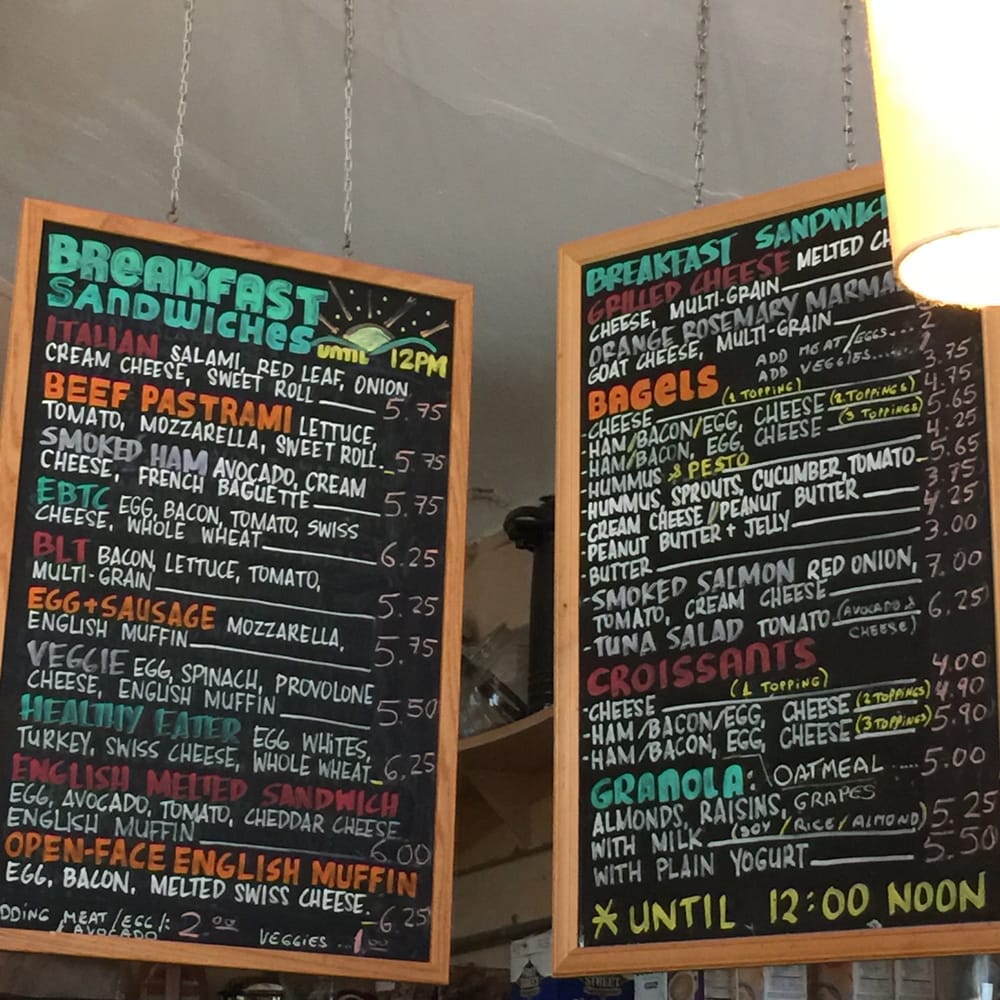 BREAKFAST
SANDWICHES
UNTIL 12PM
ITALIAN SALAMI, RED LEAF, ONION,
CREAM CHEESE, SWEET ROLL 5.75
BEEF PASTRAMI LETTUCE,
TOMATO, MOZZARELLA, SWEET ROLL. 5.75
SMOKED HAM AVOCADO, CREAM
CHEESE, FRENCH BAGUETTE 5.75
EBTC EGG, BACON, TOMATO, SWISS
CHEESE, WHOLE WHEAT 6.25
BLT BACON, LETTUCE, TOMATO,
MULTI-GRAIN 5.25
EGG+SAUSAGE MOZZARELLA,
ENGLISH MUFFIN 5.75
VEGGIE EGG, SPINACH, PROVOLONE
CHEESE, ENGLISH MUFFIN 5.50
HEALTHY EATER EGG WHITES,
TURKEY, SWISS CHEESE, WHOLE WHEAT 6.25
ENGLISH MELTED SANDWICH
EGG, AVOCADO, TOMATO, CHEDDAR CHEESE
ENGLISH MUFFIN 6.00
OPEN-FACE ENGLISH MUFFIN
EGG, BACON, MELTED SWISS CHEESE. 6.25
DDING MEAT/EGG/: 2.00
/AVOCADO VEGGIES ...1.00
BREAKFAST SANDWIC
GRILLED CHEESE MELTED CH
CHEESE, MULTI-GRAIN
ORANGE ROSEMARY MARMA
GOAT CHEESE, MULTI-GRAIN
ADD MEAT/EGGS.... 2
ADD VEGGIES...... 1
BAGELS
-CHEESE (1 TOPPING) 3.75
-HAM/BACON/EGG, CHEESE (2 TOPPINGS) 4.75
-HAM/BACON, EGG, CHEESE (3 TOPPINGS) 5.65
-HUMMUS & PESTO 4.25
-HUMMUS, SPROUTS, CUCUMBER, TOMATO 5.65
-CREAM CHEESE/PEANUT BUTTER 3.75
-PEANUT BUTTER + JELLY 4.25
-BUTTER 3.00
-SMOKED SALMON RED ONION,
TOMATO, CREAM CHEESE 7.00
-TUNA SALAD TOMATO (AVOCADO & CHEESE) 6.25
CROISSANTS
-CHEESE (1 TOPPING) 4.00
-HAM/BACON/EGG, CHEESE (2 TOPPINGS) 4.90
-HAM/BACON, EGG, CHEESE (3 TOPPINGS) 5.90
GRANOLA: OATMEAL .... 5.00
ALMONDS, RAISINS, GRAPES
WITH MILK (SOY/RICE/ALMOND) 5.25
WITH PLAIN YOGURT 5.50
*UNTIL 12:00 NOON